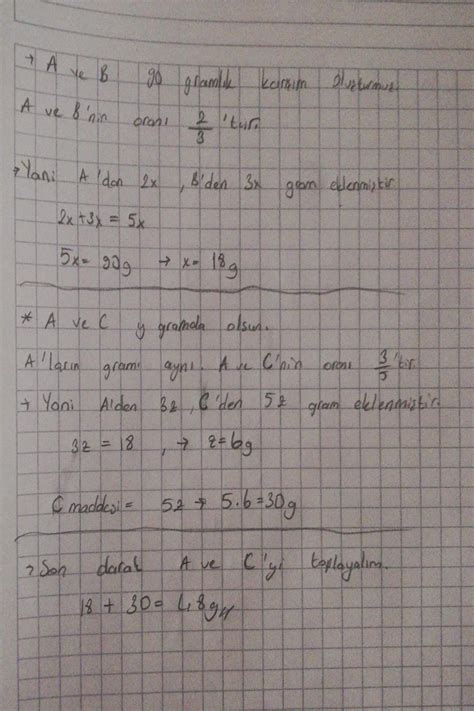 → A ve B 90 gramlık karışım oluşturmuş.
A ve B'nin oranı 2/3 'tür.
→ Yani A'dan 2x , B'den 3x gram eklenmiştir
2x+3x = 5x
5x = 90g → x = 18g
* A ve C y gramda olsun.
A'ların gramı aynı. A ve C'nin oranı 3/5 'tir.
→ Yani A'den 3z, C'den 5z gram eklenmiştir.
3z = 18 , → z=6g
C maddesi = 5z → 5.6=30g
→ Son darak A ve C'yi toplayalım.
18 + 30 = 48g//